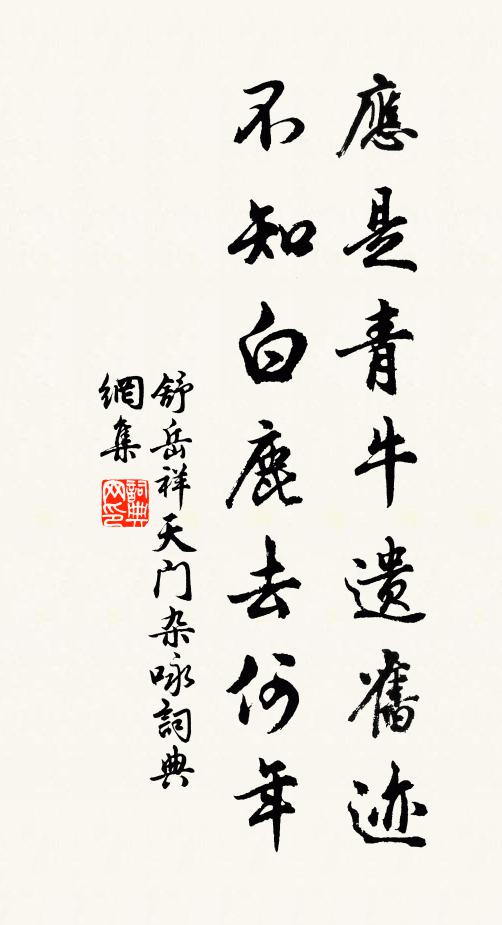 應是青牛遗舊迹
不知白鹿去何年
舒岳祥天门杂咏詞典
網集
詞典网印